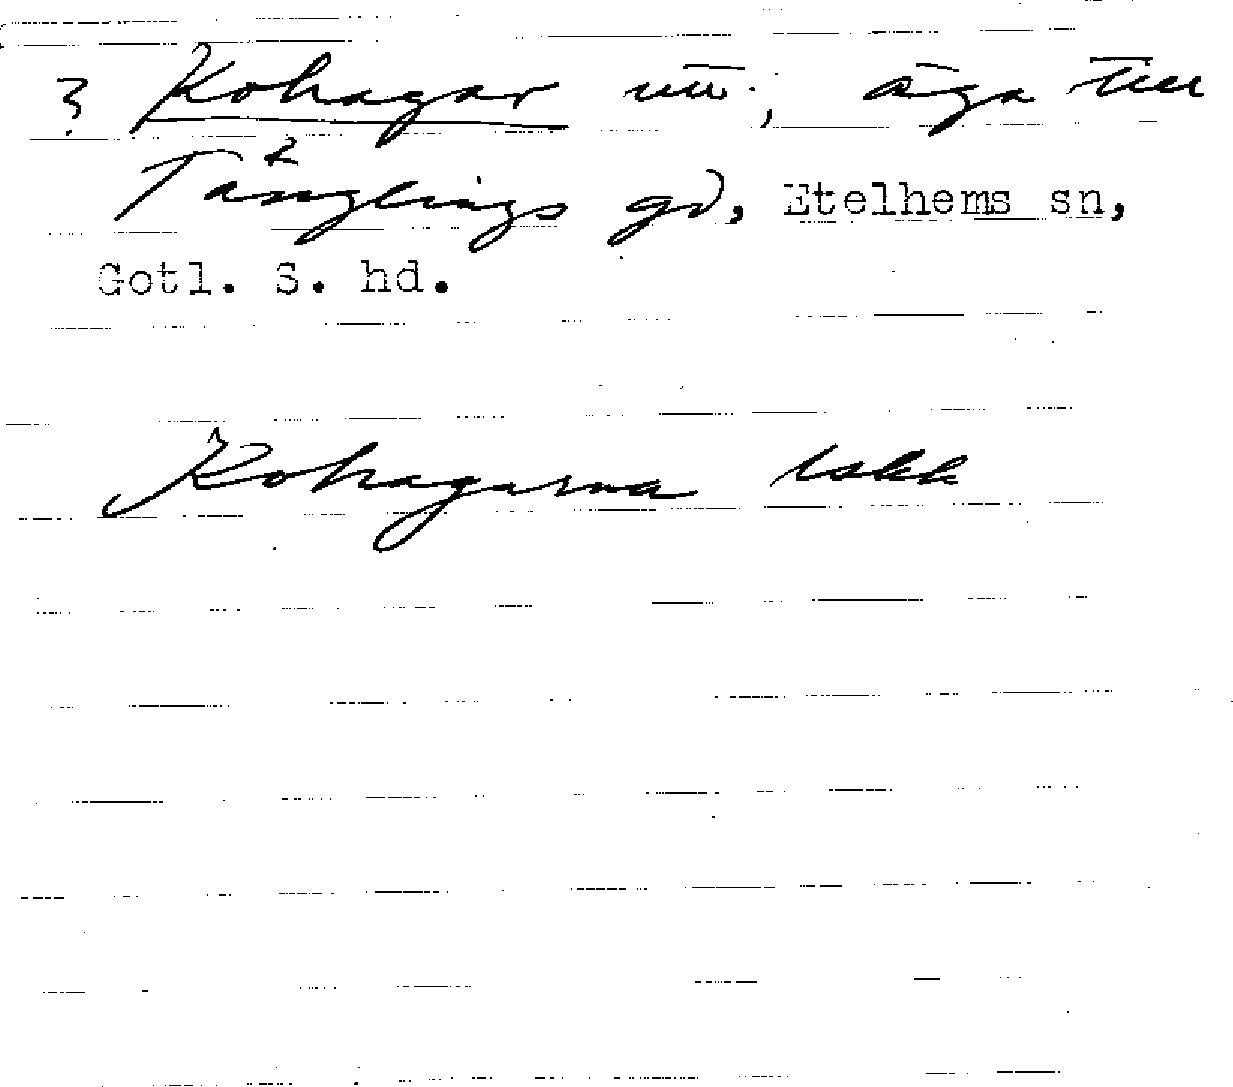 ? Kohagar äga till
2
Tänglings gd, Etelhems sn,
Gotl. S. hd.
Kohagarna